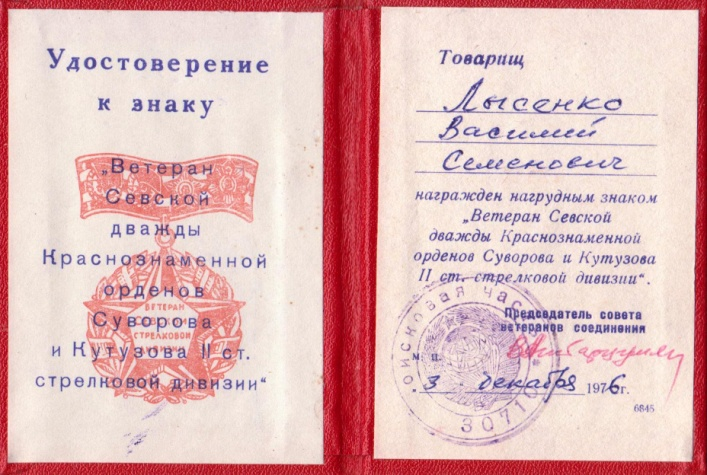 Удостоверение
к знаку
„Ветеран
Севской
дважды
Краснознаменной
орденов
Суворова
и Кутузова II ст.
стрелковой дивизии“
ВЕТЕРАН
СЕВСКОЙ
СТРЕЛКОВОЙ
ДИВИЗИИ
Товарищ
Лысенко
Василий
Семенович
награжден нагрудным знаком
„Ветеран Севской
дважды Краснознаменной
орденов Суворова и Кутузова
II ст. стрелковой дивизии“.
Председатель совета
ветеранов соединения
м. п.
3 декабря 1976г.
6845
войсковая часть
30710